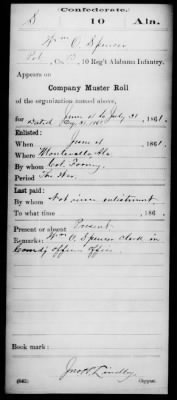 Confederate.
S 10 Ala.
Wm O. Spencer
Pvt., Co. , 10 Reg't Alabama Infantry.
Appears on
Company Muster Roll
of the organization named above,
for June 4 to July 31, 1861.
dated Aug 31, 1861
Enlisted:
When June 4, 186 .
Where Montevallo Ala
By whom Col. Forney
Period The War
Last paid:
By whom Not since enlistment
To what time , 186 .
Present or absent Present
Remarks: Wm O. Spencer clerk in
Comdg officers office.
Book mark:
Jno W. Lindley
(642) Copyist.